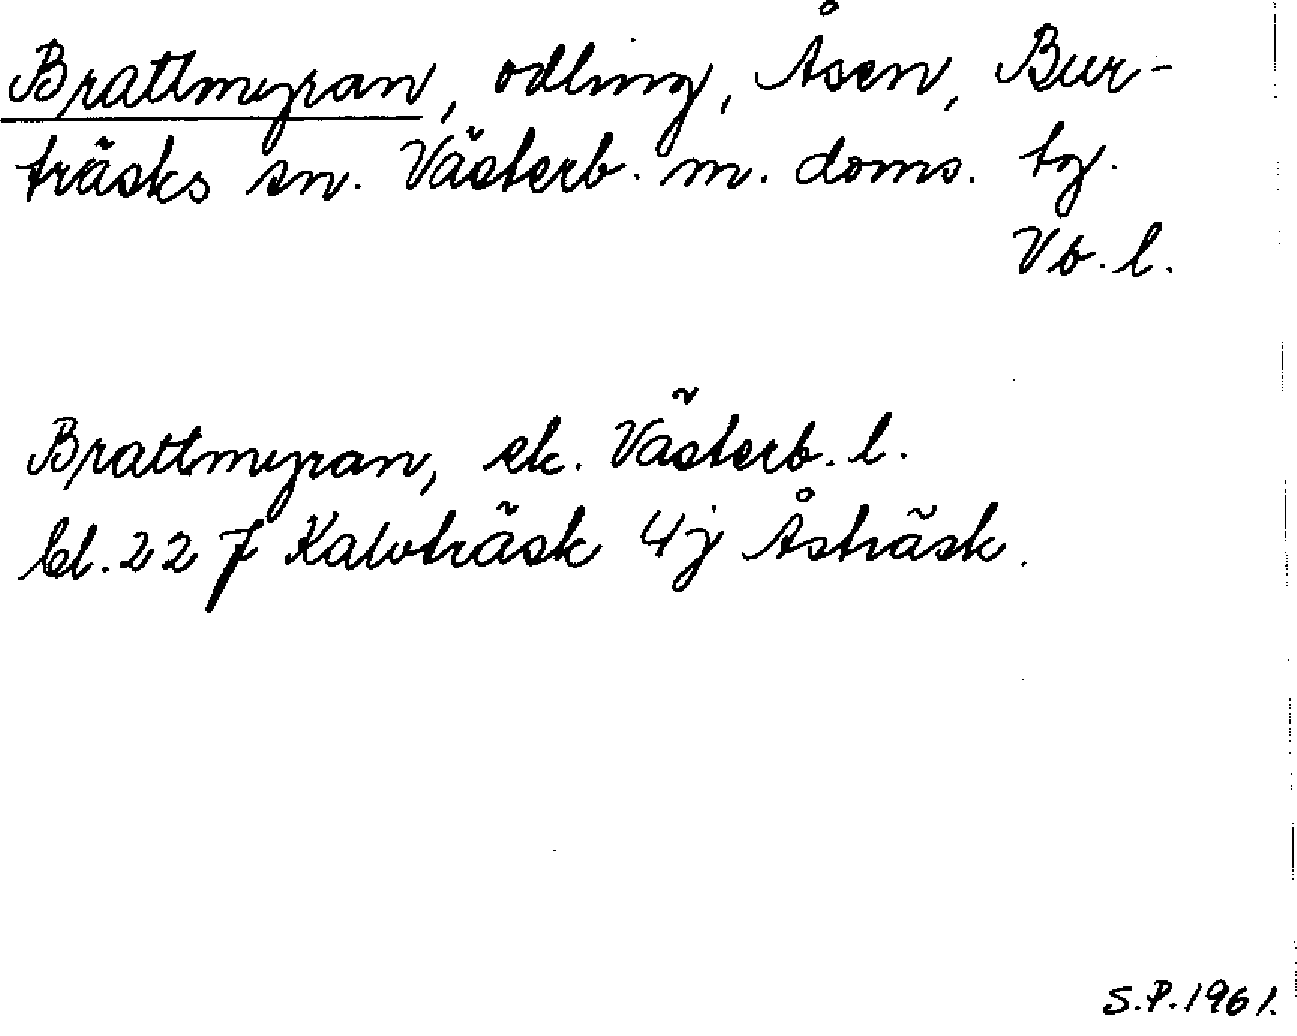 Brattmyran, odling, Åsen, Bur-
träsks sn. Västerb. m. doms. tg.
Vb. l.
Brattmyran, ek. Västerb. l.
bl. 22 J Kalvträsk 4j Åsträsk.
S.P. 1961.